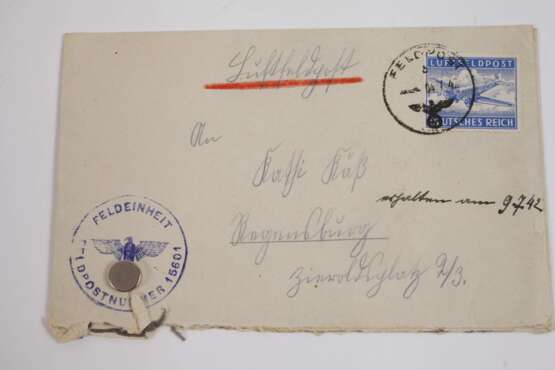 Luftfeldpost
FELDPOST
LUFTFELDPOST
DEUTSCHES REICH
An
Kathi Käß
erhalten am 9.7.42
Regensburg
Zieroldsplatz 2/3.
FELDEINHEIT
FELDPOSTNUMMER 15601